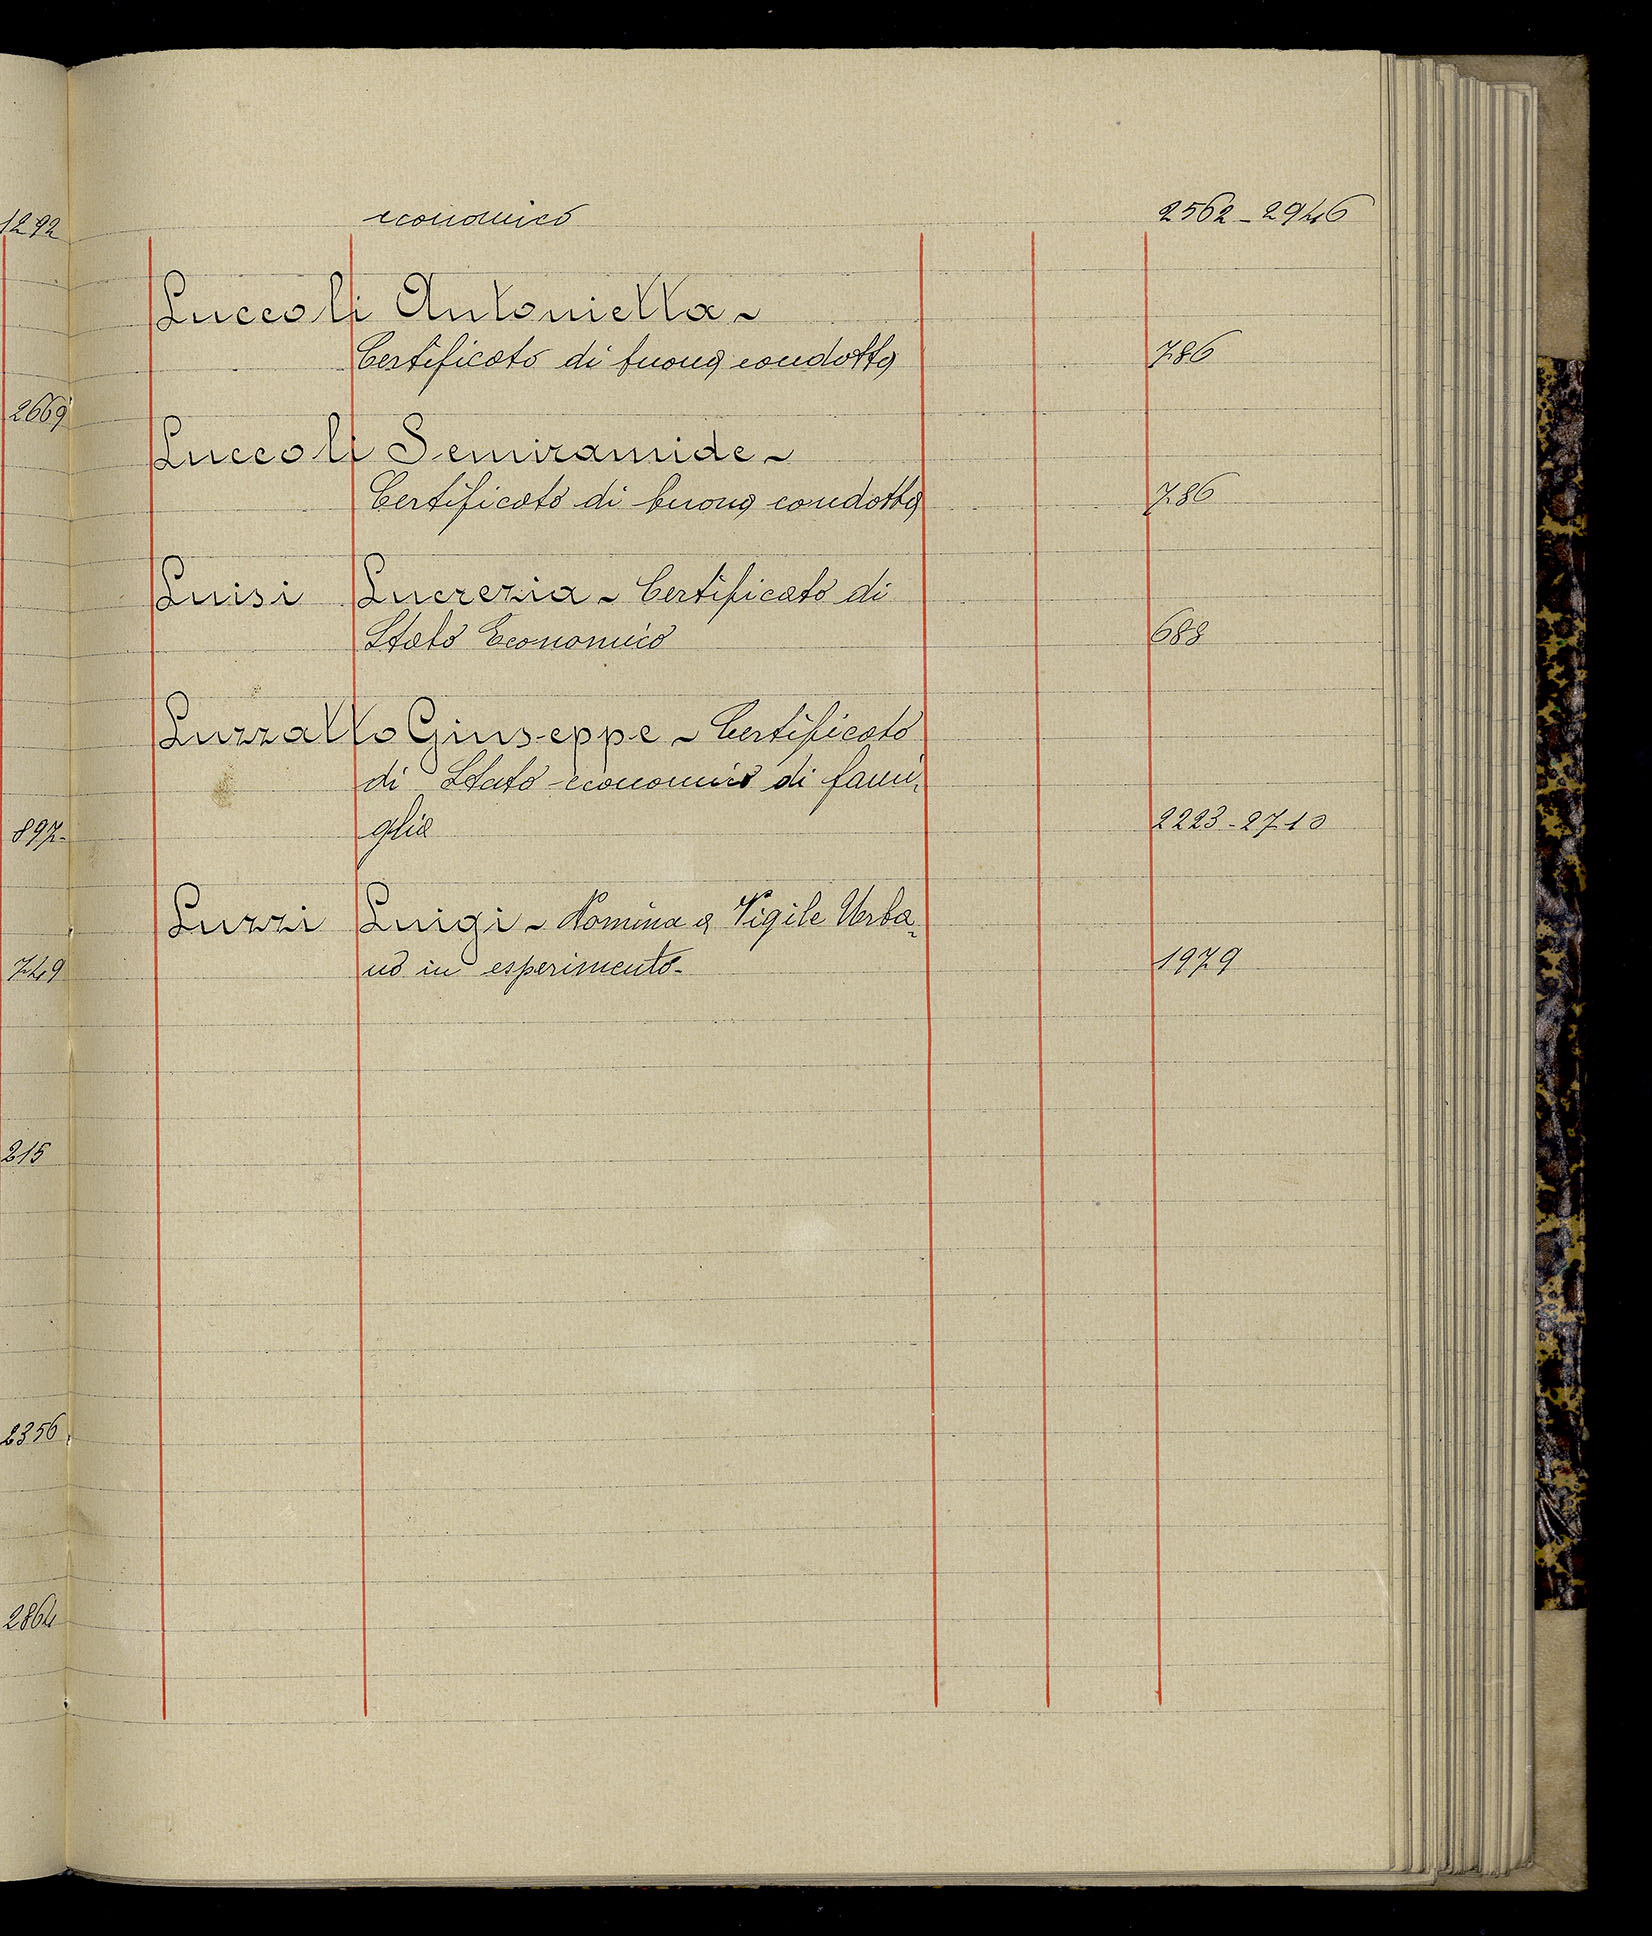 1292
2669
897-
749
215
2356
2864
economico 2562-2946
Luccoli Antonietta -
Certificato di buona condotta 786
Luccoli Semiramide -
Certificato di buona condotta 786
Luisi Lucrezia - Certificato di
Stato Economico 688
Luzzatto Giuseppe - Certificato
di Stato economico di fami-
glia 2223-2710
Luzzi Luigi - Nomina a Vigile Urba-
no in esperimento- 1979